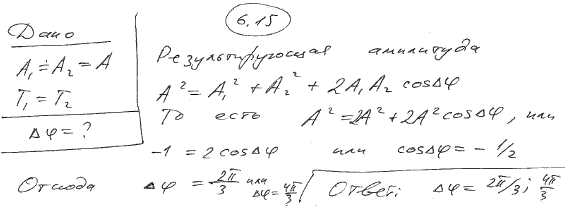 6.15
Дано
A₁ = A₂ = A
T₁ = T₂
Δφ = ?
Результирующая амплитуда
A² = A₁² + A₂² + 2A₁A₂ cosΔφ
То есть A² = 2A² + 2A² cosΔφ, или
-1 = 2 cosΔφ или cosΔφ = - 1/2
Отсюда Δφ = 2π/3 или Δφ = 4π/3 Ответ: Δφ = 2π/3; 4π/3